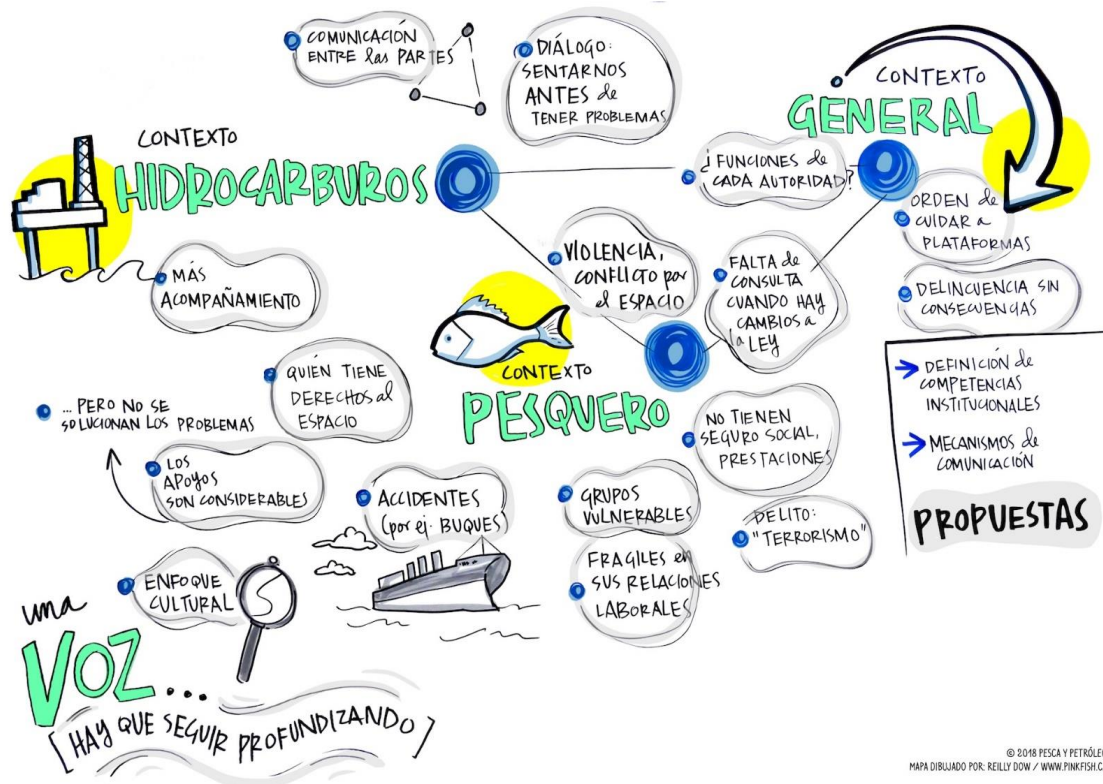 COMUNICACIÓN
ENTRE las PARTES
DIÁLOGO:
SENTARNOS
ANTES de
TENER PROBLEMAS
CONTEXTO
GENERAL
CONTEXTO
HIDROCARBUROS
¿FUNCIONES de
CADA AUTORIDAD?
ORDEN de
CUIDAR a
PLATAFORMAS
DELINCUENCIA SIN
CONSECUENCIAS
MÁS
ACOMPAÑAMIENTO
VIOLENCIA,
CONFLICTO por
el ESPACIO
FALTA de
CONSULTA
CUANDO HAY
CAMBIOS a
la LEY
CONTEXTO
PESQUERO
QUIÉN TIENE
DERECHOS al
ESPACIO
... PERO NO SE
SOLUCIONAN LOS PROBLEMAS
LOS
APOYOS
SON CONSIDERABLES
ACCIDENTES
(por ej. BUQUES)
NO TIENEN
SEGURO SOCIAL,
PRESTACIONES
GRUPOS
VULNERABLES
DELITO:
"TERRORISMO"
FRAGILES en
SUS RELACIONES
LABORALES
DEFINICIÓN de
COMPETENCIAS
INSTITUCIONALES
MECANISMOS de
COMUNICACIÓN
PROPUESTAS
ENFOQUE
CULTURAL
una
VOZ...
[HAY QUE SEGUIR PROFUNDIZANDO]
© 2018 PESCA Y PETRÓLE
MAPA DIBUJADO POR: REILLY DOW / WWW.PINKFISH.C